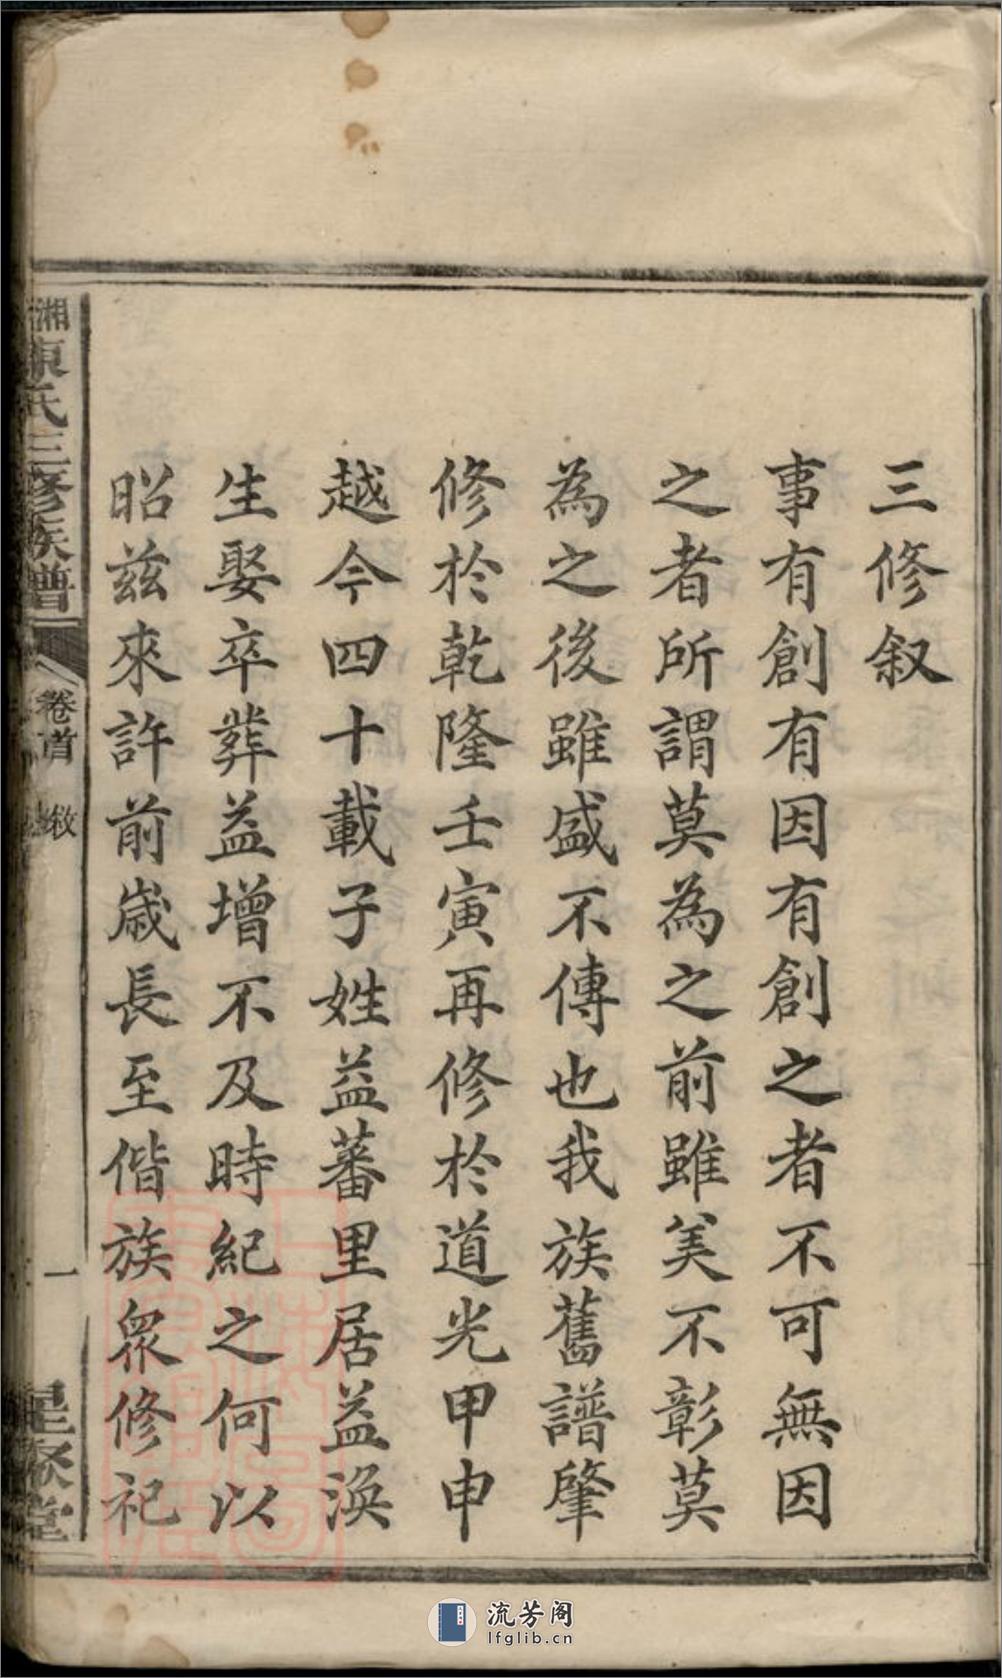 三修叙
事有創有因有創之者不可無因
之者所謂莫為之前雖美不彰莫
為之後雖盛不傳也我族舊譜肇
修於乾隆壬寅再修於道光甲申
越今四十載子姓益蕃里居益渙
生娶卒葬益增不及時紀之何以
昭茲來許前歲長至偕族眾修祀
湘
氏三修族譜
卷首
敘
一
星聚堂
流芳阁
lfglib.cn